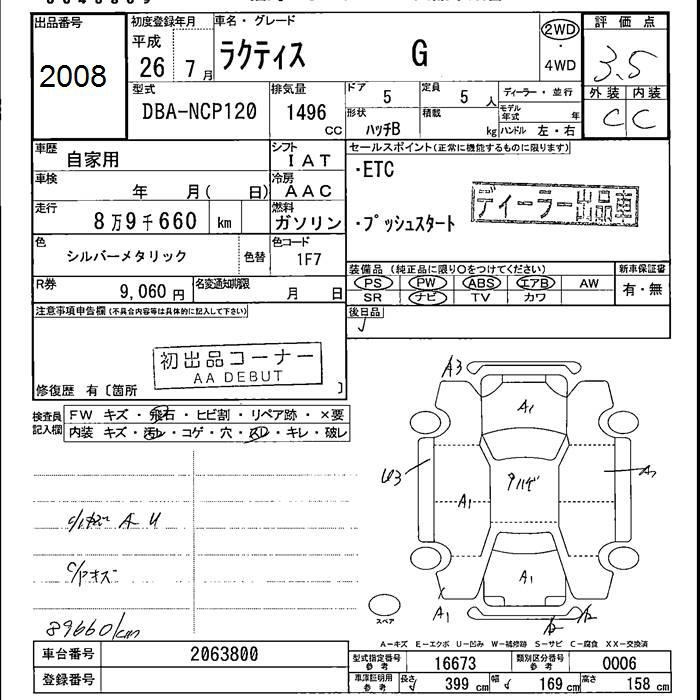 出品番号
2008
初度登録年月
平成
26 7 月
車名・グレード
ラクティス G
2WD
・
4WD
評価点
3.5
外装 内装
C C
型式
DBA-NCP120
排気量
1496
CC
ドア
5
定員
5 人
形状
ハッチB
積載
kg
ディーラー・並行
モデル
年式 年
ハンドル 左・右
車歴
自家用
シフト
IAT
車検
年 月( 日)
冷房
AAC
走行
8万9千660 km
燃料
ガソリン
色
シルバーメタリック
色替
色コード
1F7
R券
9,060 円
名変通知期限
月 日
セールスポイント(正常に機能するものに限ります)
・ETC
・プッシュスタート
ディーラー出品車
装備品(純正品に限り○をつけてください)
PS PW ABS エアB AW
SR ナビ TV カワ
新車保証書
有・無
後日品
注意事項申告欄(不具合内容等は具体的に記入して下さい)
初出品コーナー
AA DEBUT
修復歴 有〔箇所 〕
検査員
記入欄
FW キズ・飛石・ヒビ割・リペア跡・×要
内装 キズ・汚レ・コゲ・穴・スレ・キレ・破レ
A3
A1
U3
A1
A1
A1
89660/cm
スペア
A-キズ E-エクボ U-凹み W-補修跡 S-サビ C-腐食 XX-交換済
車台番号
2063800
登録番号
型式指定番号
参考
16673
類別区分番号
参考
0006
車庫証明用
参考
長さ
399 cm
幅
169 cm
高さ
158 cm